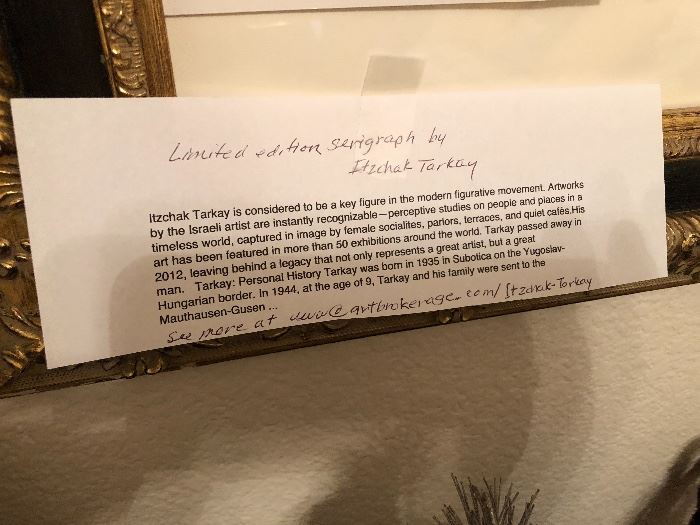 Limited edition serigraph by
Itzchak Tarkay
Itzchak Tarkay is considered to be a key figure in the modern figurative movement. Artworks
by the Israeli artist are instantly recognizable—perceptive studies on people and places in a
timeless world, captured in image by female socialites, parlors, terraces, and quiet cafés.His
art has been featured in more than 50 exhibitions around the world. Tarkay passed away in
2012, leaving behind a legacy that not only represents a great artist, but a great
man. Tarkay: Personal History Tarkay was born in 1935 in Subotica on the Yugoslav-
Hungarian border. In 1944, at the age of 9, Tarkay and his family were sent to the
Mauthausen-Gusen ...
See more at www@artbrokerage.com/Itzchak-Tarkay